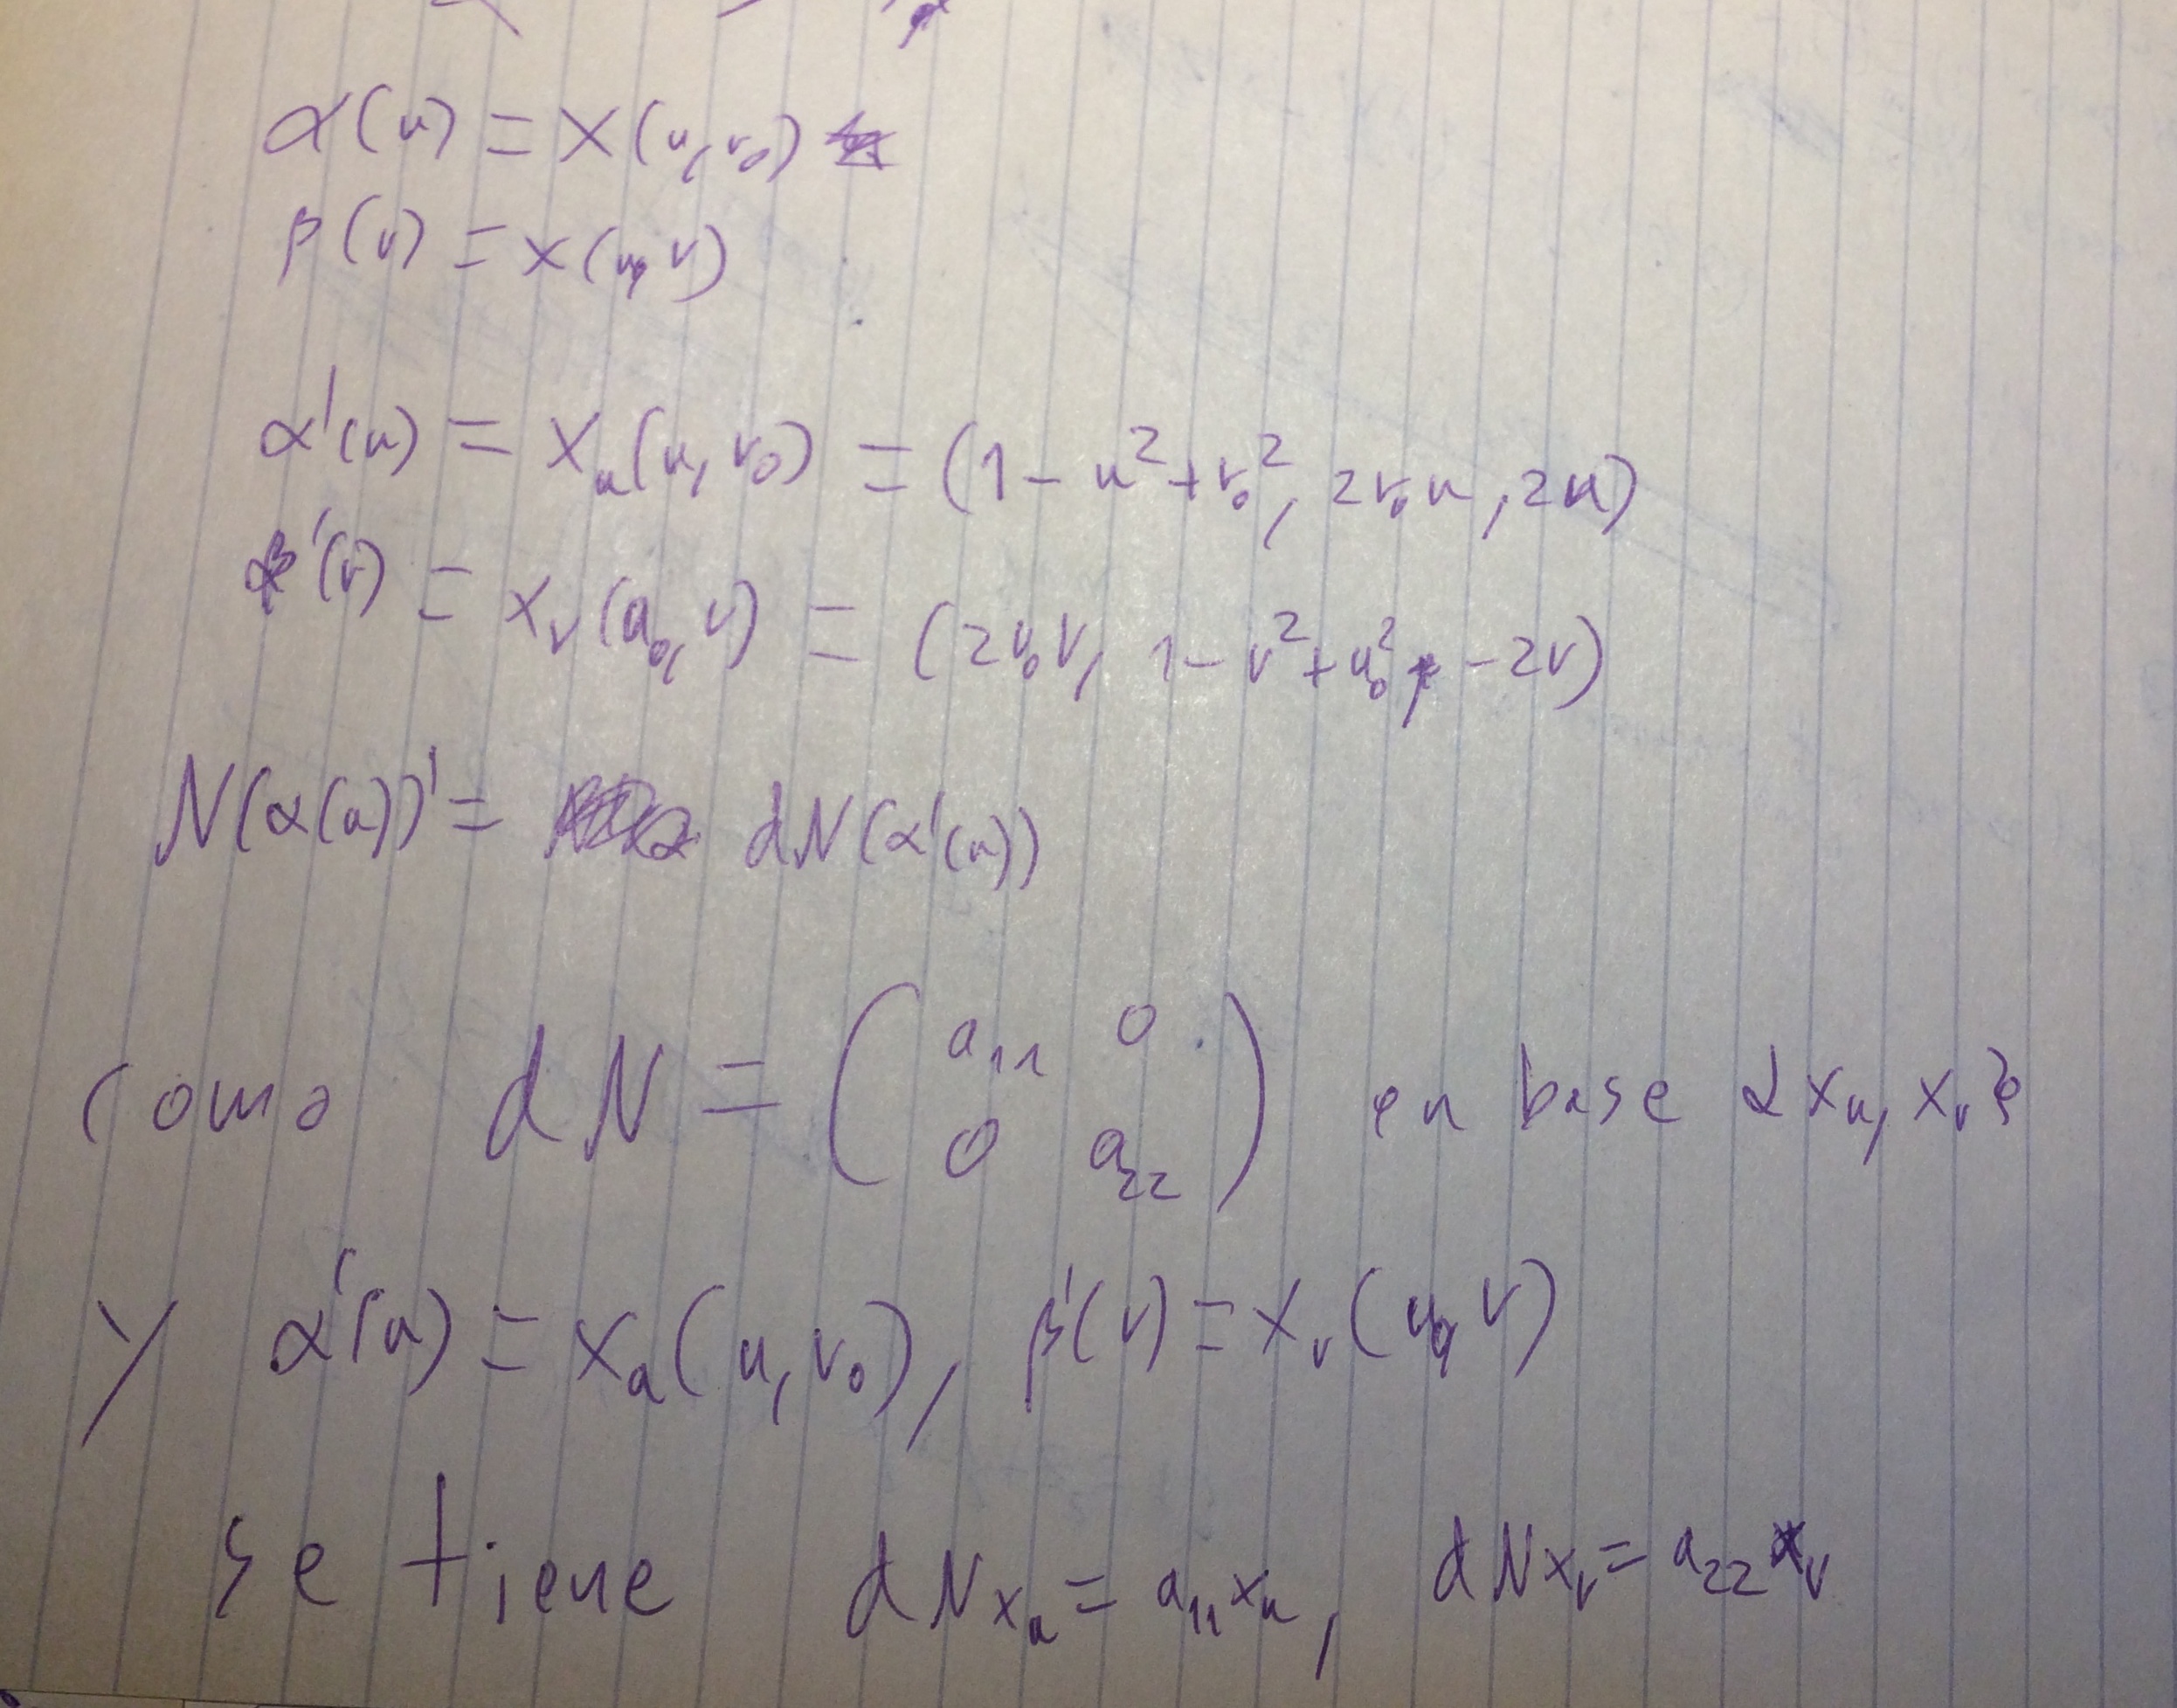 α(u) = x(u, v₀)
β(v) = x(u₀, v)
α'(u) = xᵤ(u, v₀) = (1 - u² + v₀², 2v₀u, 2u)
β'(v) = xᵥ(u₀, v) = (2u₀v, 1 - v² + u₀², -2v)
N(α(u))' = dN(α'(u))
como dN = ( a₁₁ 0 en base {xᵤ, xᵥ}
0 a₂₂ )
y α'(u) = xᵤ(u, v₀), β'(v) = xᵥ(u₀, v)
se tiene dN xᵤ = a₁₁ xᵤ, dN xᵥ = a₂₂ xᵥ